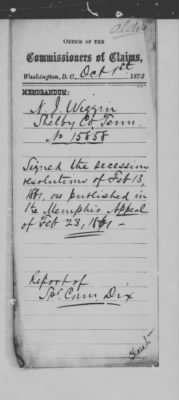 aldis
OFFICE OF THE
Commissioners of Claims,
Washington, D. C., Oct 1st 1873
MEMORANDUM:
N. J. Wiggin
Shelby Co Tenn.
No 15858
Signed the secession
resolutions of Feb 13,
1861, as published in
the Memphis Appeal
of Feb 23, 1861 -
Report of
Spl. Com Dix